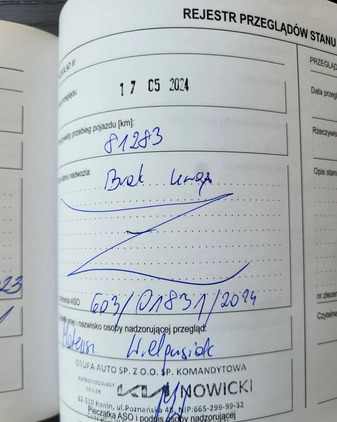 REJESTR PRZEGLĄDÓW STANU
PRZEGLĄD
przeglądu
17 05 2024
Data przeg
przebieg pojazdu [km]:
81283
Rzeczywis
stanu nadwozia:
Brak uwag
Opis stan
ASO
603/01831/2024
nr zlecen
i nazwisko osoby nadzorującej przegląd:
Czytelne
Mateusz Wielgusiak
GRUPA AUTO SP. Z O.O. SP. KOMANDYTOWA
AUTORYZOWANY
DEALER
KIA NOWICKI
62-510 Konin, ul.Poznańska 43, NIP:665-299-99-32
Pieczątka ASO i podpis osoby nadzorującej